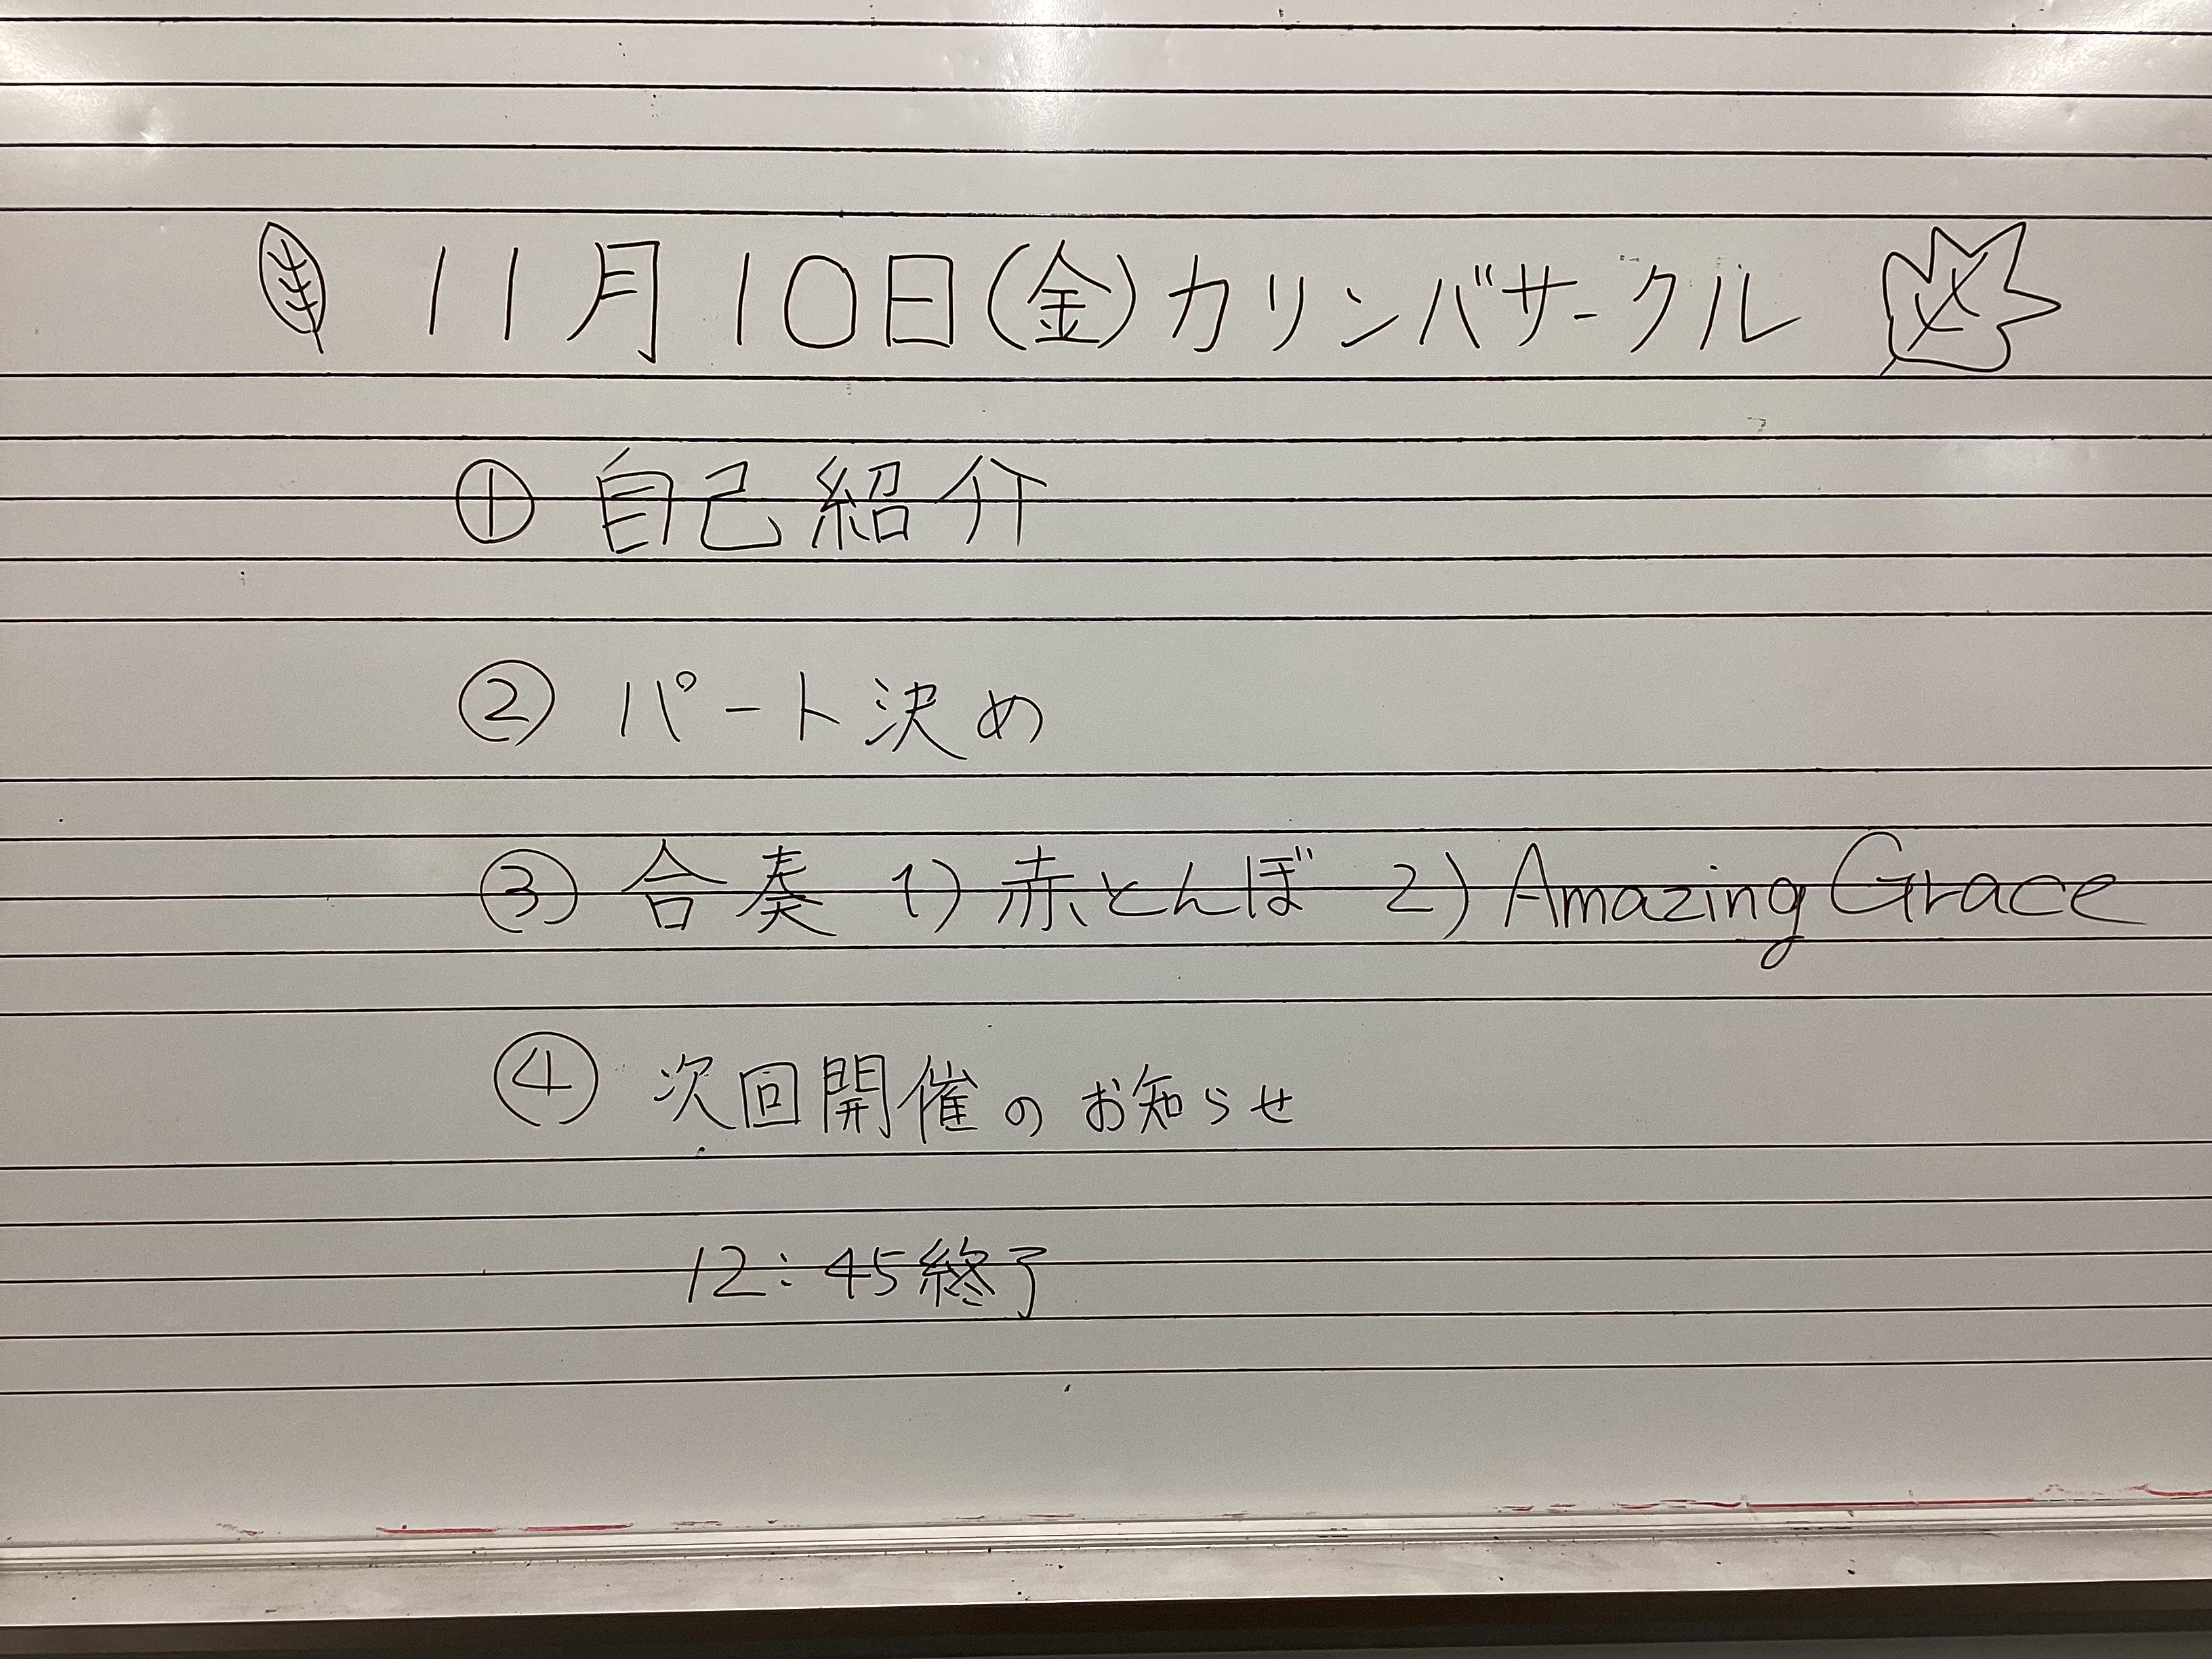 11月10日(金)カリンバサークル
① 自己紹介
② パート決め
③ 合奏 1) 赤とんぼ 2) Amazing Grace
④ 次回開催のお知らせ
12:45終了